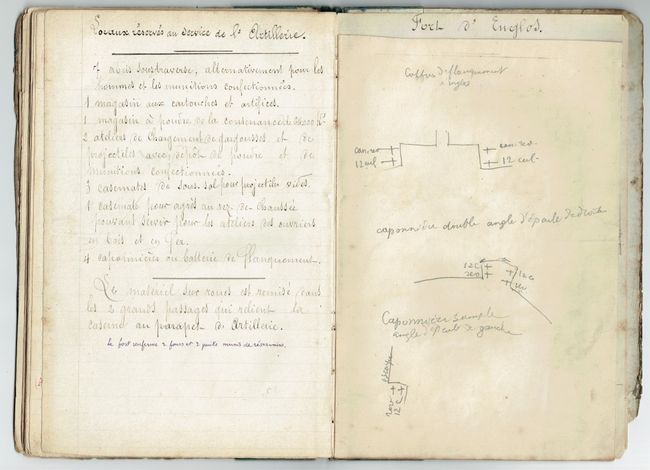 Locaux réservés au service de l'Artillerie.
7 abris sous traverse, alternativement pour les
hommes et les munitions confectionnées.
1 magasin aux cartouches et artifices.
1 magasin à poudre de la contenance de
2 ateliers de chargement de gargousses et de
projectiles avec dépôt de poudre et de
munitions confectionnées.
3 casemates de sous-sol pour projectiles vides.
1 casemate pour agrès au rez-de-chaussée
pouvant servir pour les ateliers des ouvriers
en bois et en fer.
4 caponnières ou batterie de flanquement.
Le matériel sur roues est remisé dans
les 2 grands passages qui relient la
caserne au parapet d'Artillerie.
Le fort renferme 2 fours et 2 puits munis de réservoirs.
Fort d'Englos.
Coffre de flanquement
can. rev
12 cul
can. rev.
12 cul.
caponnière double angle d'épaule de droite
12 c
rev
12 c
rev
Caponnière simple
angle d'épaule de gauche
escarpe
rev
12 c